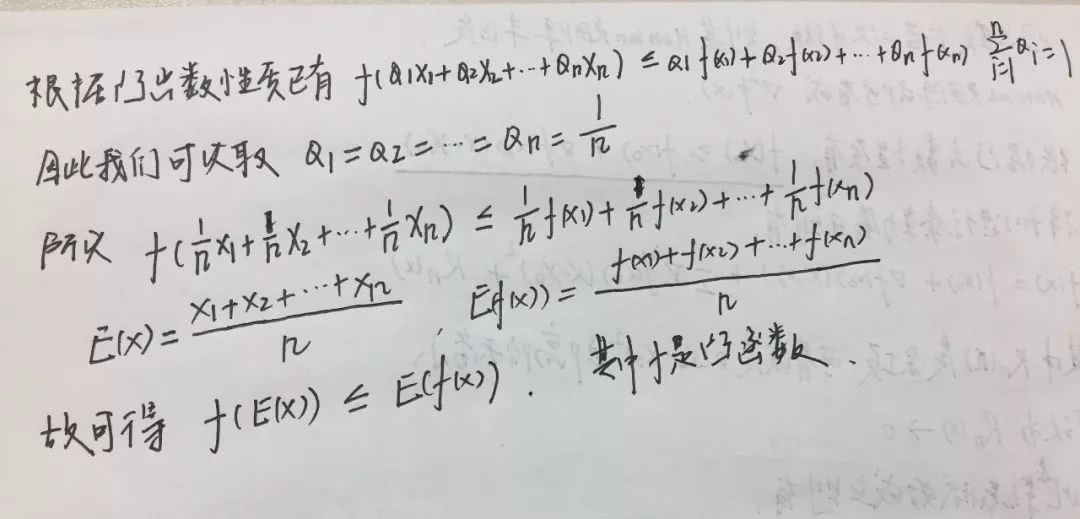 根据凸函数性质已有 f(θ1x1+θ2x2+⋯+θnxn) ≤ θ1f(x1)+θ2f(x2)+⋯+θnf(xn) ∑_{i=1}^{n} θi=1
因此我们可以取 θ1=θ2=⋯=θn=1/n
所以 f(1/n x1+1/n x2+⋯+1/n xn) ≤ 1/n f(x1)+1/n f(x2)+⋯+1/n f(xn)
E(x)=(x1+x2+⋯+xn)/n , E(f(x))=(f(x1)+f(x2)+⋯+f(xn))/n
故可得 f(E(x)) ≤ E(f(x)). 其中f是凸函数.